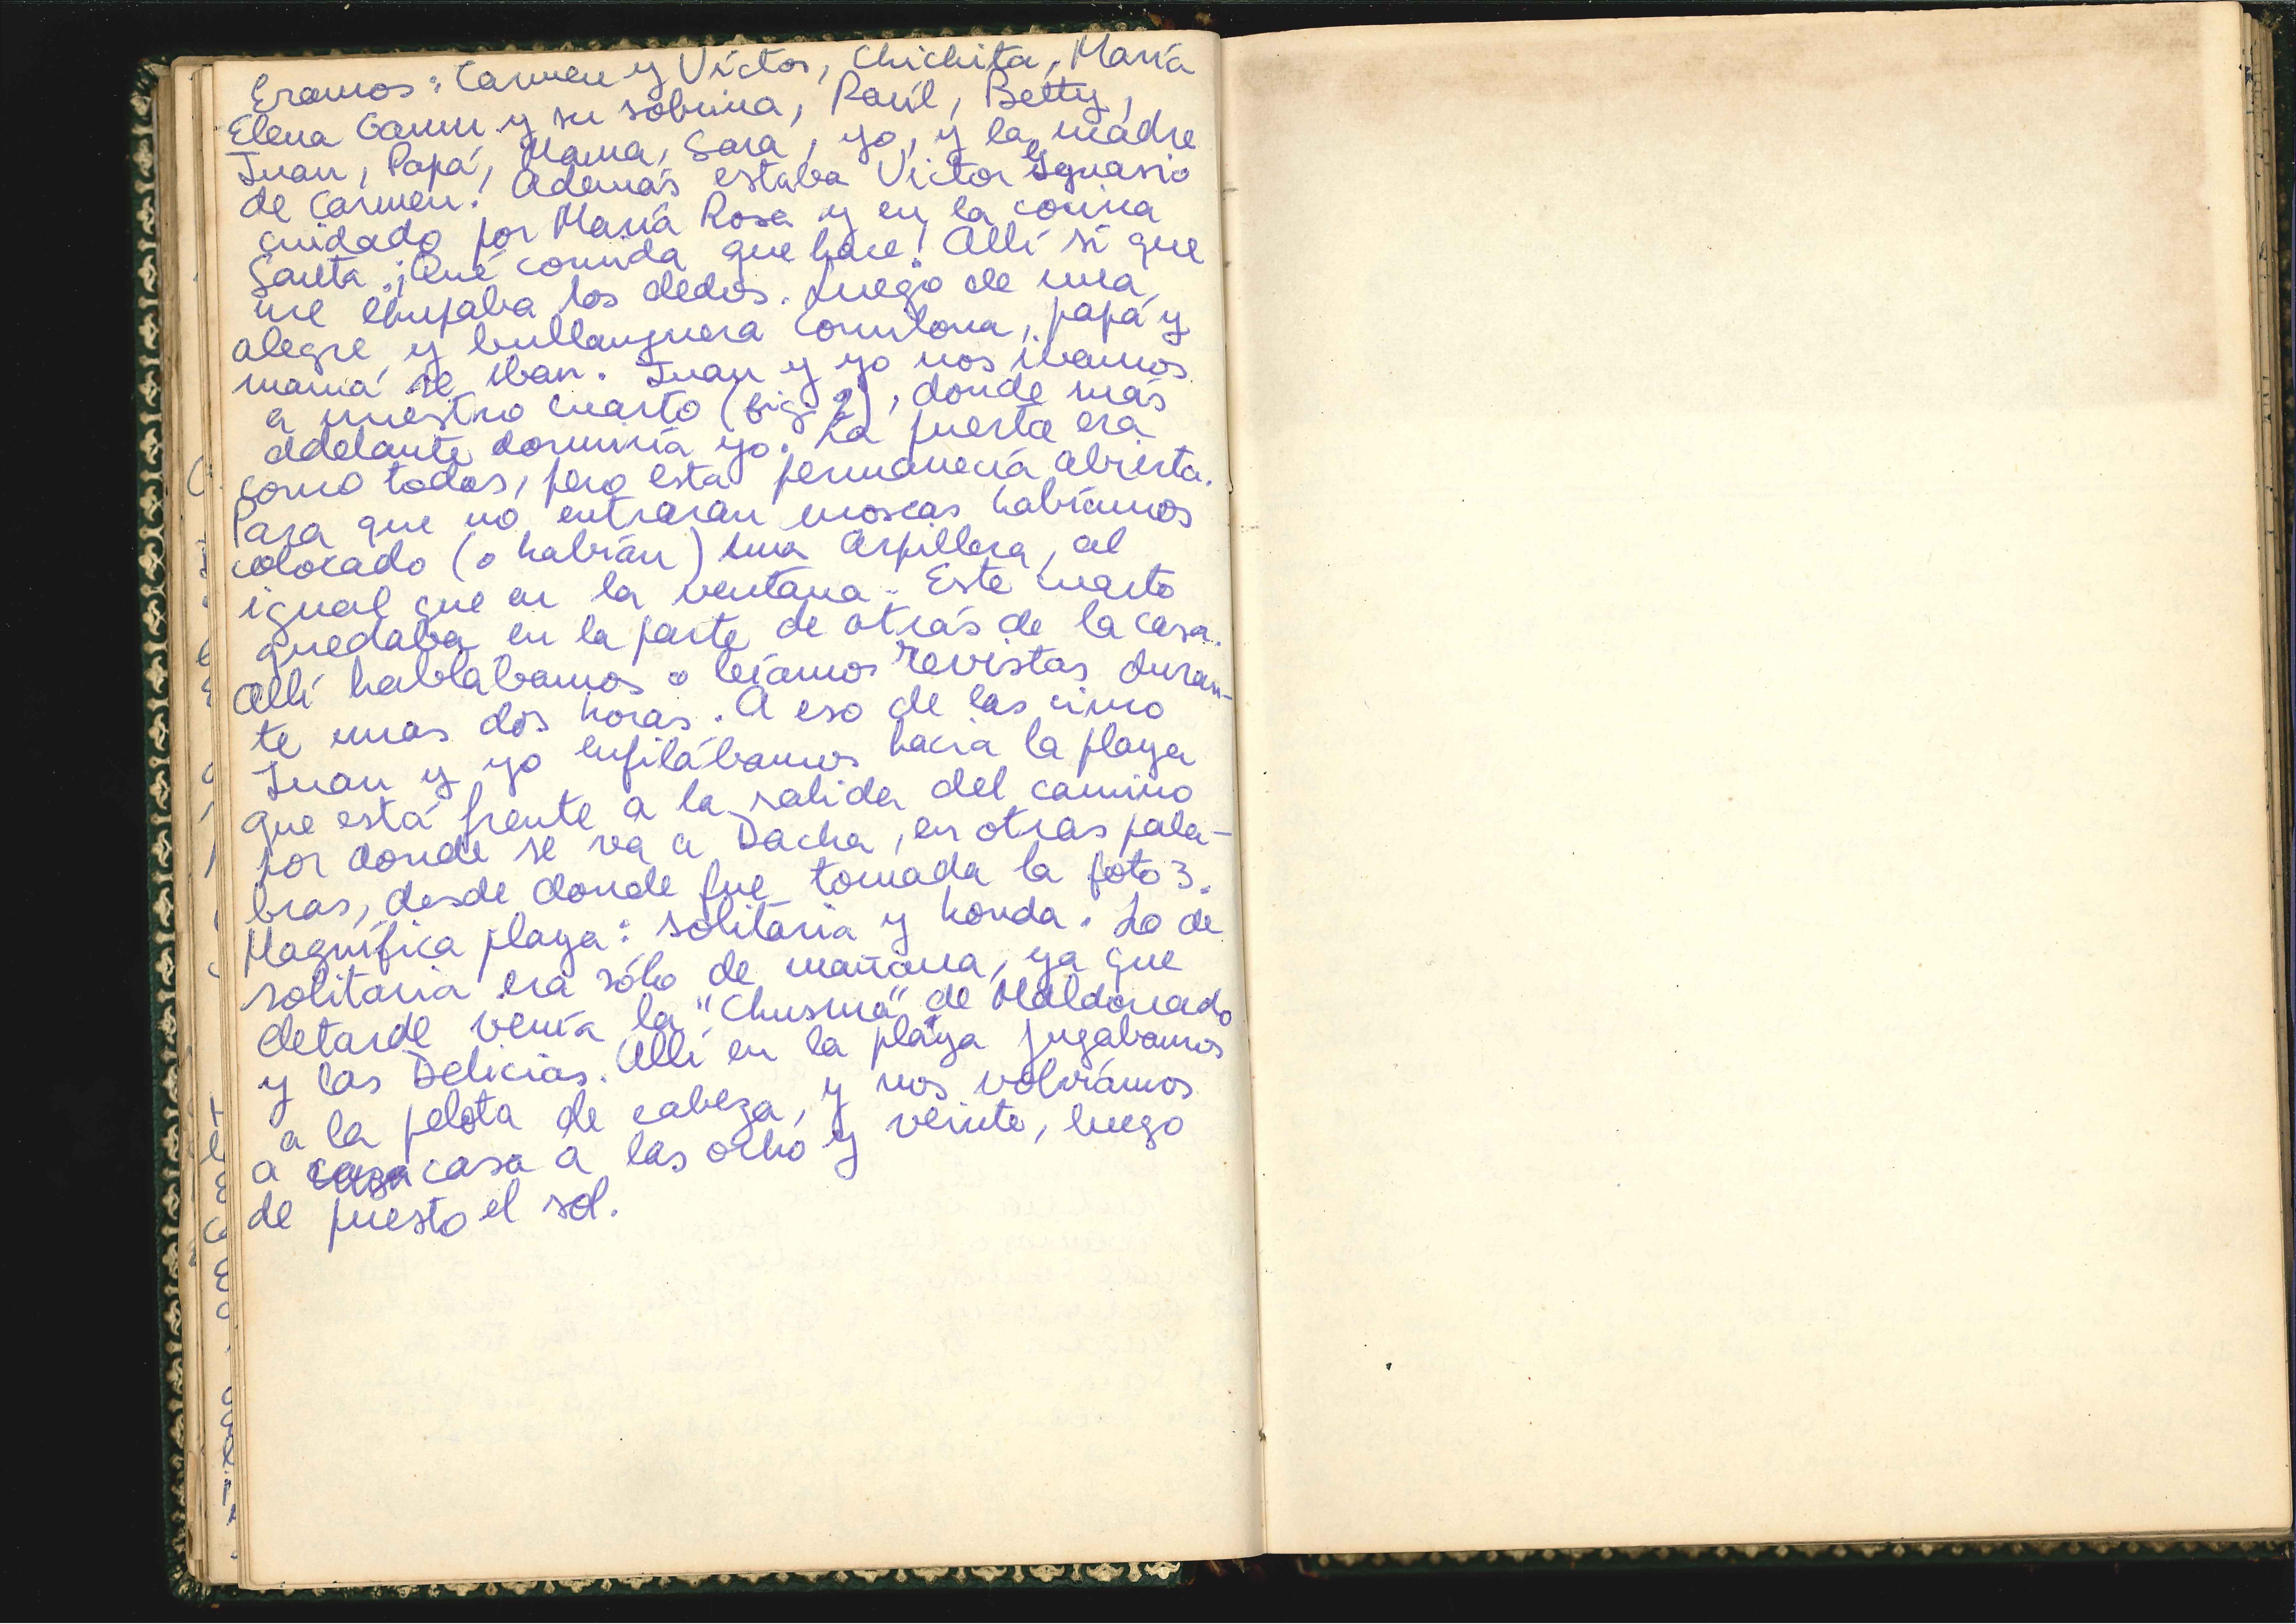 Eramos: Carmen y Víctor, Chichita, María
Elena Gamu y su sobrina, Raúl, Betty,
Juan, Papá, Mama, Sara, yo, y la madre
de Carmen. Además estaba Victor Ignasio
cuidado por María Rosa y en la cocina
Santa. ¡Qué comida que hace! Allí sí que
me chupaba los dedos. Luego de una
alegre y bullanguera comilona, papá y
mamá se iban. Juan y yo nos ibamos
a nuestro cuarto (fig. 2), donde más
adelante dormiría yo. La puerta era
como todas, pero esta permanecía abierta.
Para que no entraran moscas habíamos
colocado (o habían) una arpillera, al
igual que en la ventana. Este cuarto
quedaba en la parte de atrás de la casa.
Allí hablábamos o leíamos revistas duran-
te unas dos horas. A eso de las cinco
Juan y yo enfilábamos hacia la playa
que está frente a la salida del camino
por donde se va a Dacha, en otras pala-
bras, desde donde fue tomada la foto 3.
Magnífica playa: solitaria y honda. Lo de
solitaria era sólo de mañana, ya que
detarde venía la "Chusma" de Maldonado
y las Delicias. Allí en la playa jugabamos
a la pelota de cabeza, y nos volvíamos
a casa a las ocho y veinte, luego
de puesto el sol.